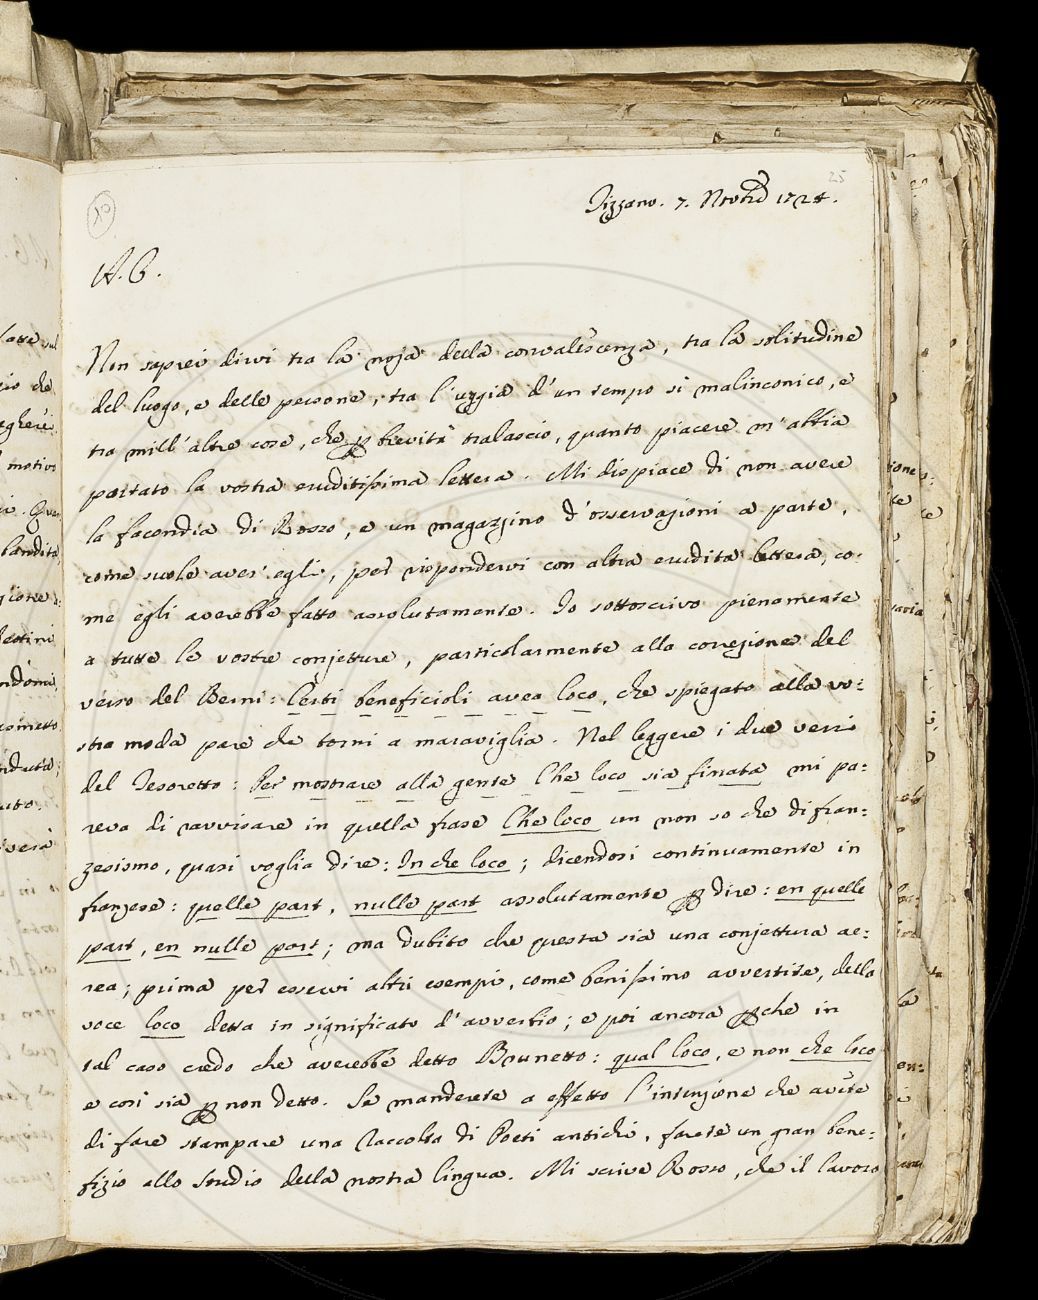 25
10
Tizzano. 7. Novbre 1724.
A. C.
Non saprei dirvi tra la noja della convalescenza, tra la solitudine
del luogo, e delle persone, tra l'uggia d'un tempo sì malinconico, e
tra mill'altre cose, che p brevità tralascio, quanto piacere m'abbia
portato la vostra eruditissima lettera. Mi dispiace di non avere
la facondia di Rosso, e un magazzino d'osservazioni a parte,
come suole aver' egli, per rispondervi con altra erudita lettera, co:
me egli averebbe fatto assolutamente. Io sottoscrivo pienamente
a tutte le vostre conjetture, particolarmente alla correzione del
verso del Berni: Certi beneficioli avea loco, che spiegato alla vo:
stra moda pare che torni a maraviglia. Nel leggere i due versi
del Tesoretto: Per mostrare alla gente Che loco sia finata mi pa:
reva di ravvisare in quella frase Che loco un non so che di fran:
zesismo, quasi voglia dire: In che loco; dicendosi continuamente in
franzese: quelle part, nulle part assolutamente p dire: en quelle
part, en nulle part; ma dubito che questa sia una conjettura ae:
rea; prima per esservi altri esempi, come benissimo avvertite, della
voce loco detta in significato d'avverbio; e poi ancora pche in
tal caso credo che averebbe detto Brunetto: qual loco, e non che loco
e così sia p non detto. Se manderete a effetto l'intenzione che avete
di fare stampare una Raccolta di Poeti antichi, farete un gran bene:
fizio allo studio della nostra lingua. Mi scrive Rosso, che il lavoro